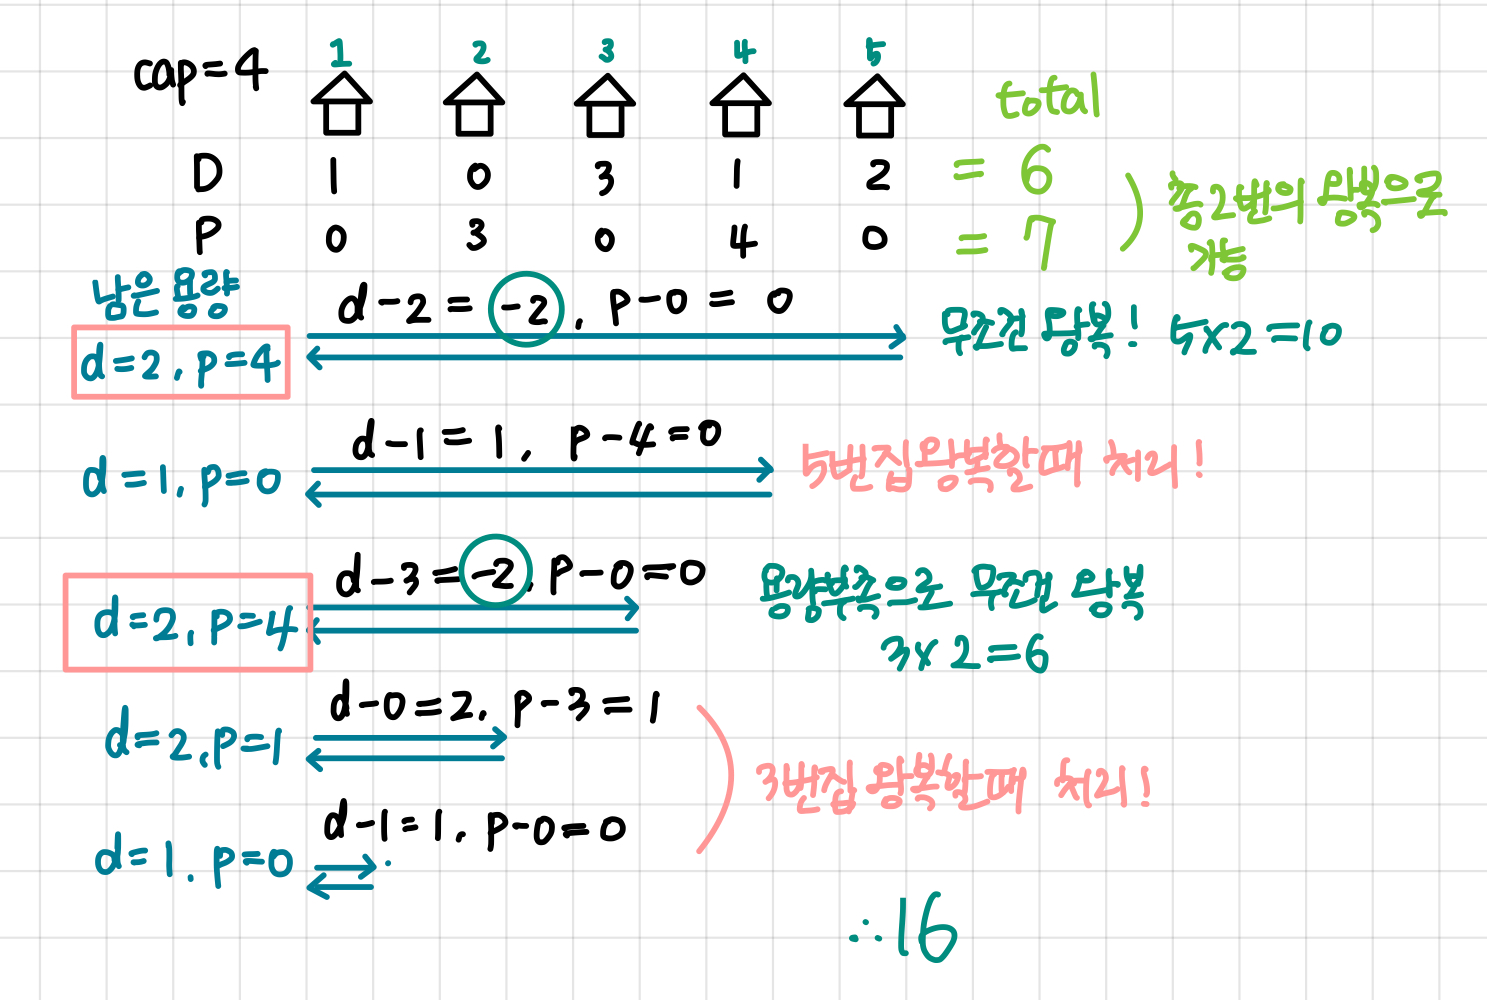 cap=4 1 2 3 4 5
total
D 1 0 3 1 2 = 6
P 0 3 0 4 0 = 7
총 2번의 왕복으로
가능
남은 용량
d-2 = -2, p-0 = 0
d=2, p=4
무조건 왕복! 5x2=10
d-1=1, p-4=0
d=1, p=0
5번집 왕복할때 처리!
d-3=-2, p-0=0
d=2, p=4
용량부족으로 무조건 왕복
3x2=6
d-0=2, p-3=1
d=2, p=1
3번집 왕복할때 처리!
d-1=1, p-0=0
d=1, p=0
∴16